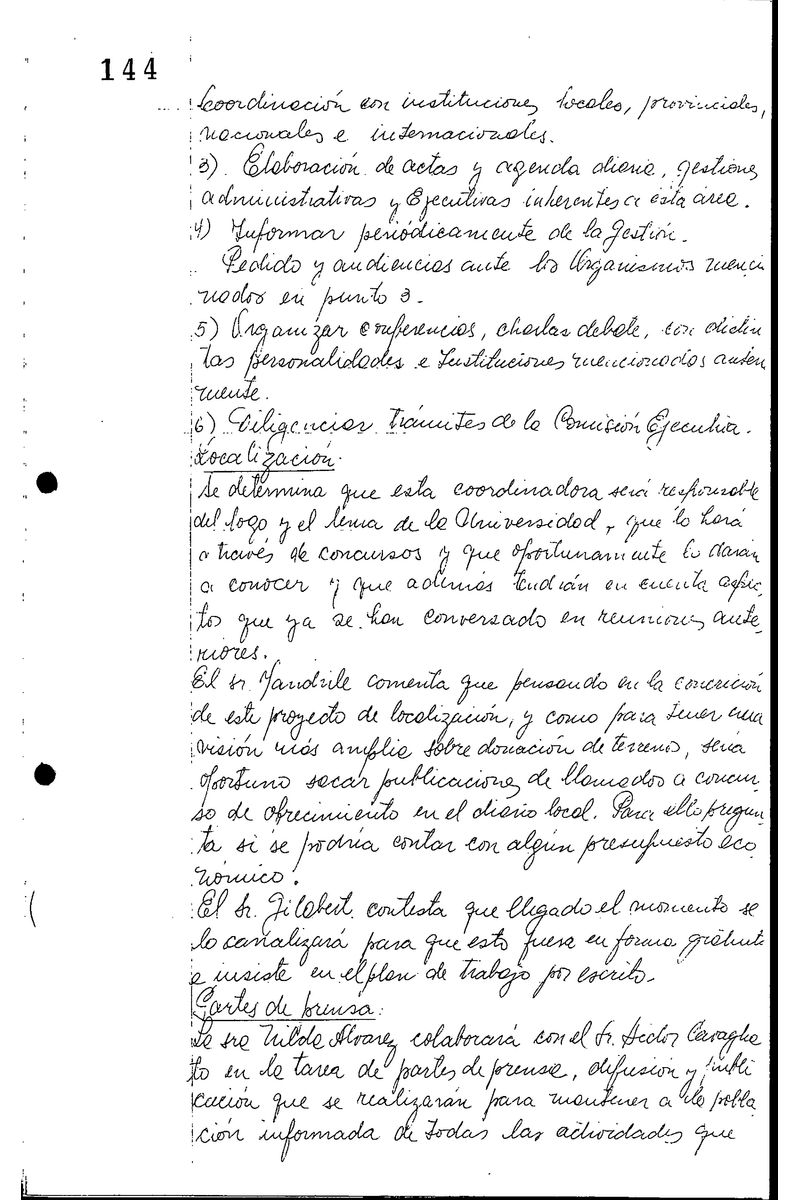 144
coordinación con instituciones locales, provinciales,
nacionales e internacionales.
3) Elaboración de actas y agenda diaria, gestiones
administrativas y Ejecutivas inherentes a esta área.
4) Informar periódicamente de la Gestión.
Pedido y audiencias ante los Organismos menci
nados en punto 3.
5) Organizar conferencias, charlas debate, con distin
tas personalidades e Instituciones mencionadas anter
mente.
6) Diligenciar trámites de la Comisión Ejecutiva.
Localización:
Se determina que esta coordinadora será responsable
del logo y el lema de la Universidad, que lo hará
a través de concursos y que oportunamente lo darán
a conocer y que además tendrán en cuenta aspec
tos que ya se han conversado en reuniones ante
riores.
El sr. comenta que pensando en la concreción
de este proyecto de localización, y como para tener una
visión más amplia sobre donación de terreno, sería
oportuno sacar publicaciones de llamados a concur
so de ofrecimiento en el diario local. Para ello pregun
ta si se podría contar con algún presupuesto eco
nómico.
El Sr. Gilabert contesta que llegado el momento se
lo canalizará para que esto fuese en forma gratuita
e insiste en el plan de trabajo por escrito.
Partes de prensa:
La sra Nilda Alvarez colaborará con el Sr. Hector Cavaglia
to en la tarea de partes de prensa, difusión y publi
cación que se realizarán para mantener a la pobla
ción informada de todas las actividades que